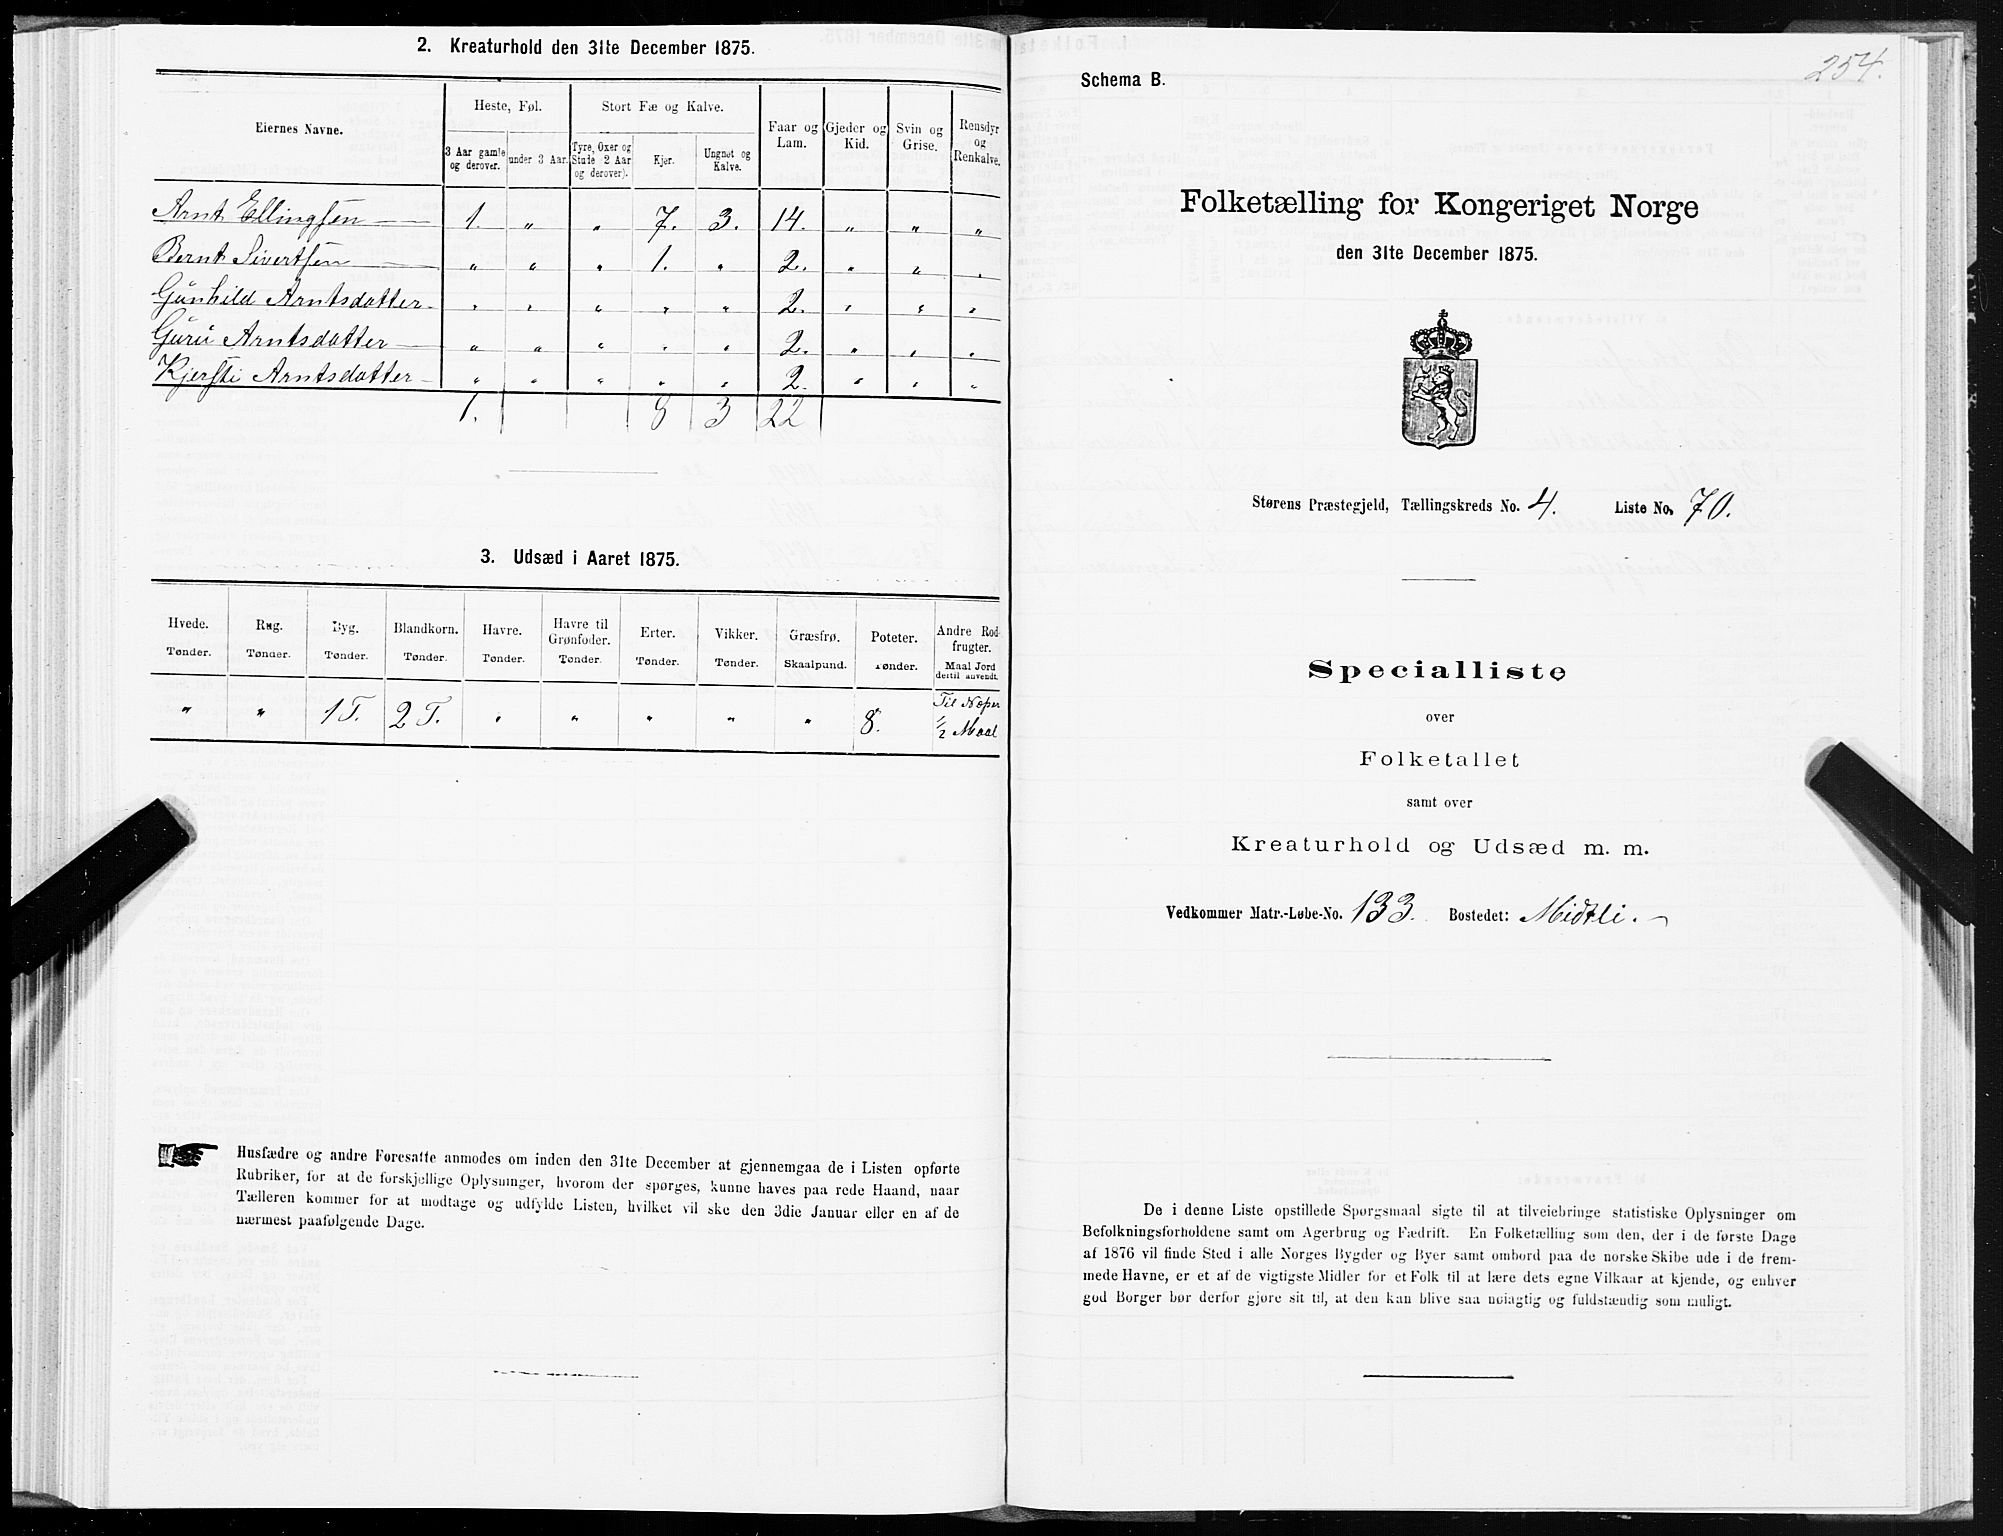 2. Kreaturhold den 31te December 1875.
Eiernes Navne.
Heste, Føl.
Stort Fæ og Kalve.
Faar og Lam.
Gjeder og Kid.
Svin og Grise.
Rensdyr og Renkalve.
3 Aar gamle og derover.
under 3 Aar.
Tyre, Oxer og Stude (2 Aar og derover).
Kjer.
Ungnøt og Kalve.
Arnt Ellingsen 1. " " 7. 3. 14. " " "
Bernt Sivertsen " " " 1. " 2. " " "
Gunhild Arntsdatter " " " " " 2. " " "
Guru Arntsdatter " " " " " 2. " " "
Kjersti Arntsdatter " " " " " 2. " " "
1. 8 3 22
3. Udsæd i Aaret 1875.
Hvede. Rug. Byg. Blandkorn. Havre. Havre til Grønfoder. Erter. Vikker. Græsfrø. Poteter. Andre Rodfrugter.
Tønder. Tønder. Tønder. Tønder. Tønder. Tønder. Tønder. Tønder. Skaalpund. Tønder. Maal Jord dertil anvendt.
" " 1 T. 2 T. " " " " " 8. Til Næper 1/2 Maal
Husfædre og andre Foresatte anmodes om inden den 31te December at gjennemgaa de i Listen opførte
Rubriker, for at de forskjellige Oplysninger, hvorom der spørges, kunne haves paa rede Haand, naar
Tælleren kommer for at modtage og udfylde Listen, hvilket vil ske den 3die Januar eller en af de
nærmest paafølgende Dage.
254.
Schema B.
Folketælling for Kongeriget Norge
den 31te December 1875.
Størens Præstegjeld, Tællingskreds No. 4. Liste No. 70.
Specialliste
over
Folketallet
samt over
Kreaturhold og Udsæd m. m.
Vedkommer Matr.-Løbe-No. 133. Bostedet: Midtli.
De i denne Liste opstillede Spørgsmaal sigte til at tilveiebringe statistiske Oplysninger om
Befolkningsforholdene samt om Agerbrug og Fædrift. En Folketælling som den, der i de første Dage
af 1876 vil finde Sted i alle Norges Bygder og Byer samt ombord paa de norske Skibe ude i de frem-
mede Havne, er et af de vigtigste Midler for et Folk til at lære dets egne Vilkaar at kjende, og enhver
god Borger bør derfor gjøre sit til, at den kan blive saa nøiagtig og fuldstændig som muligt.